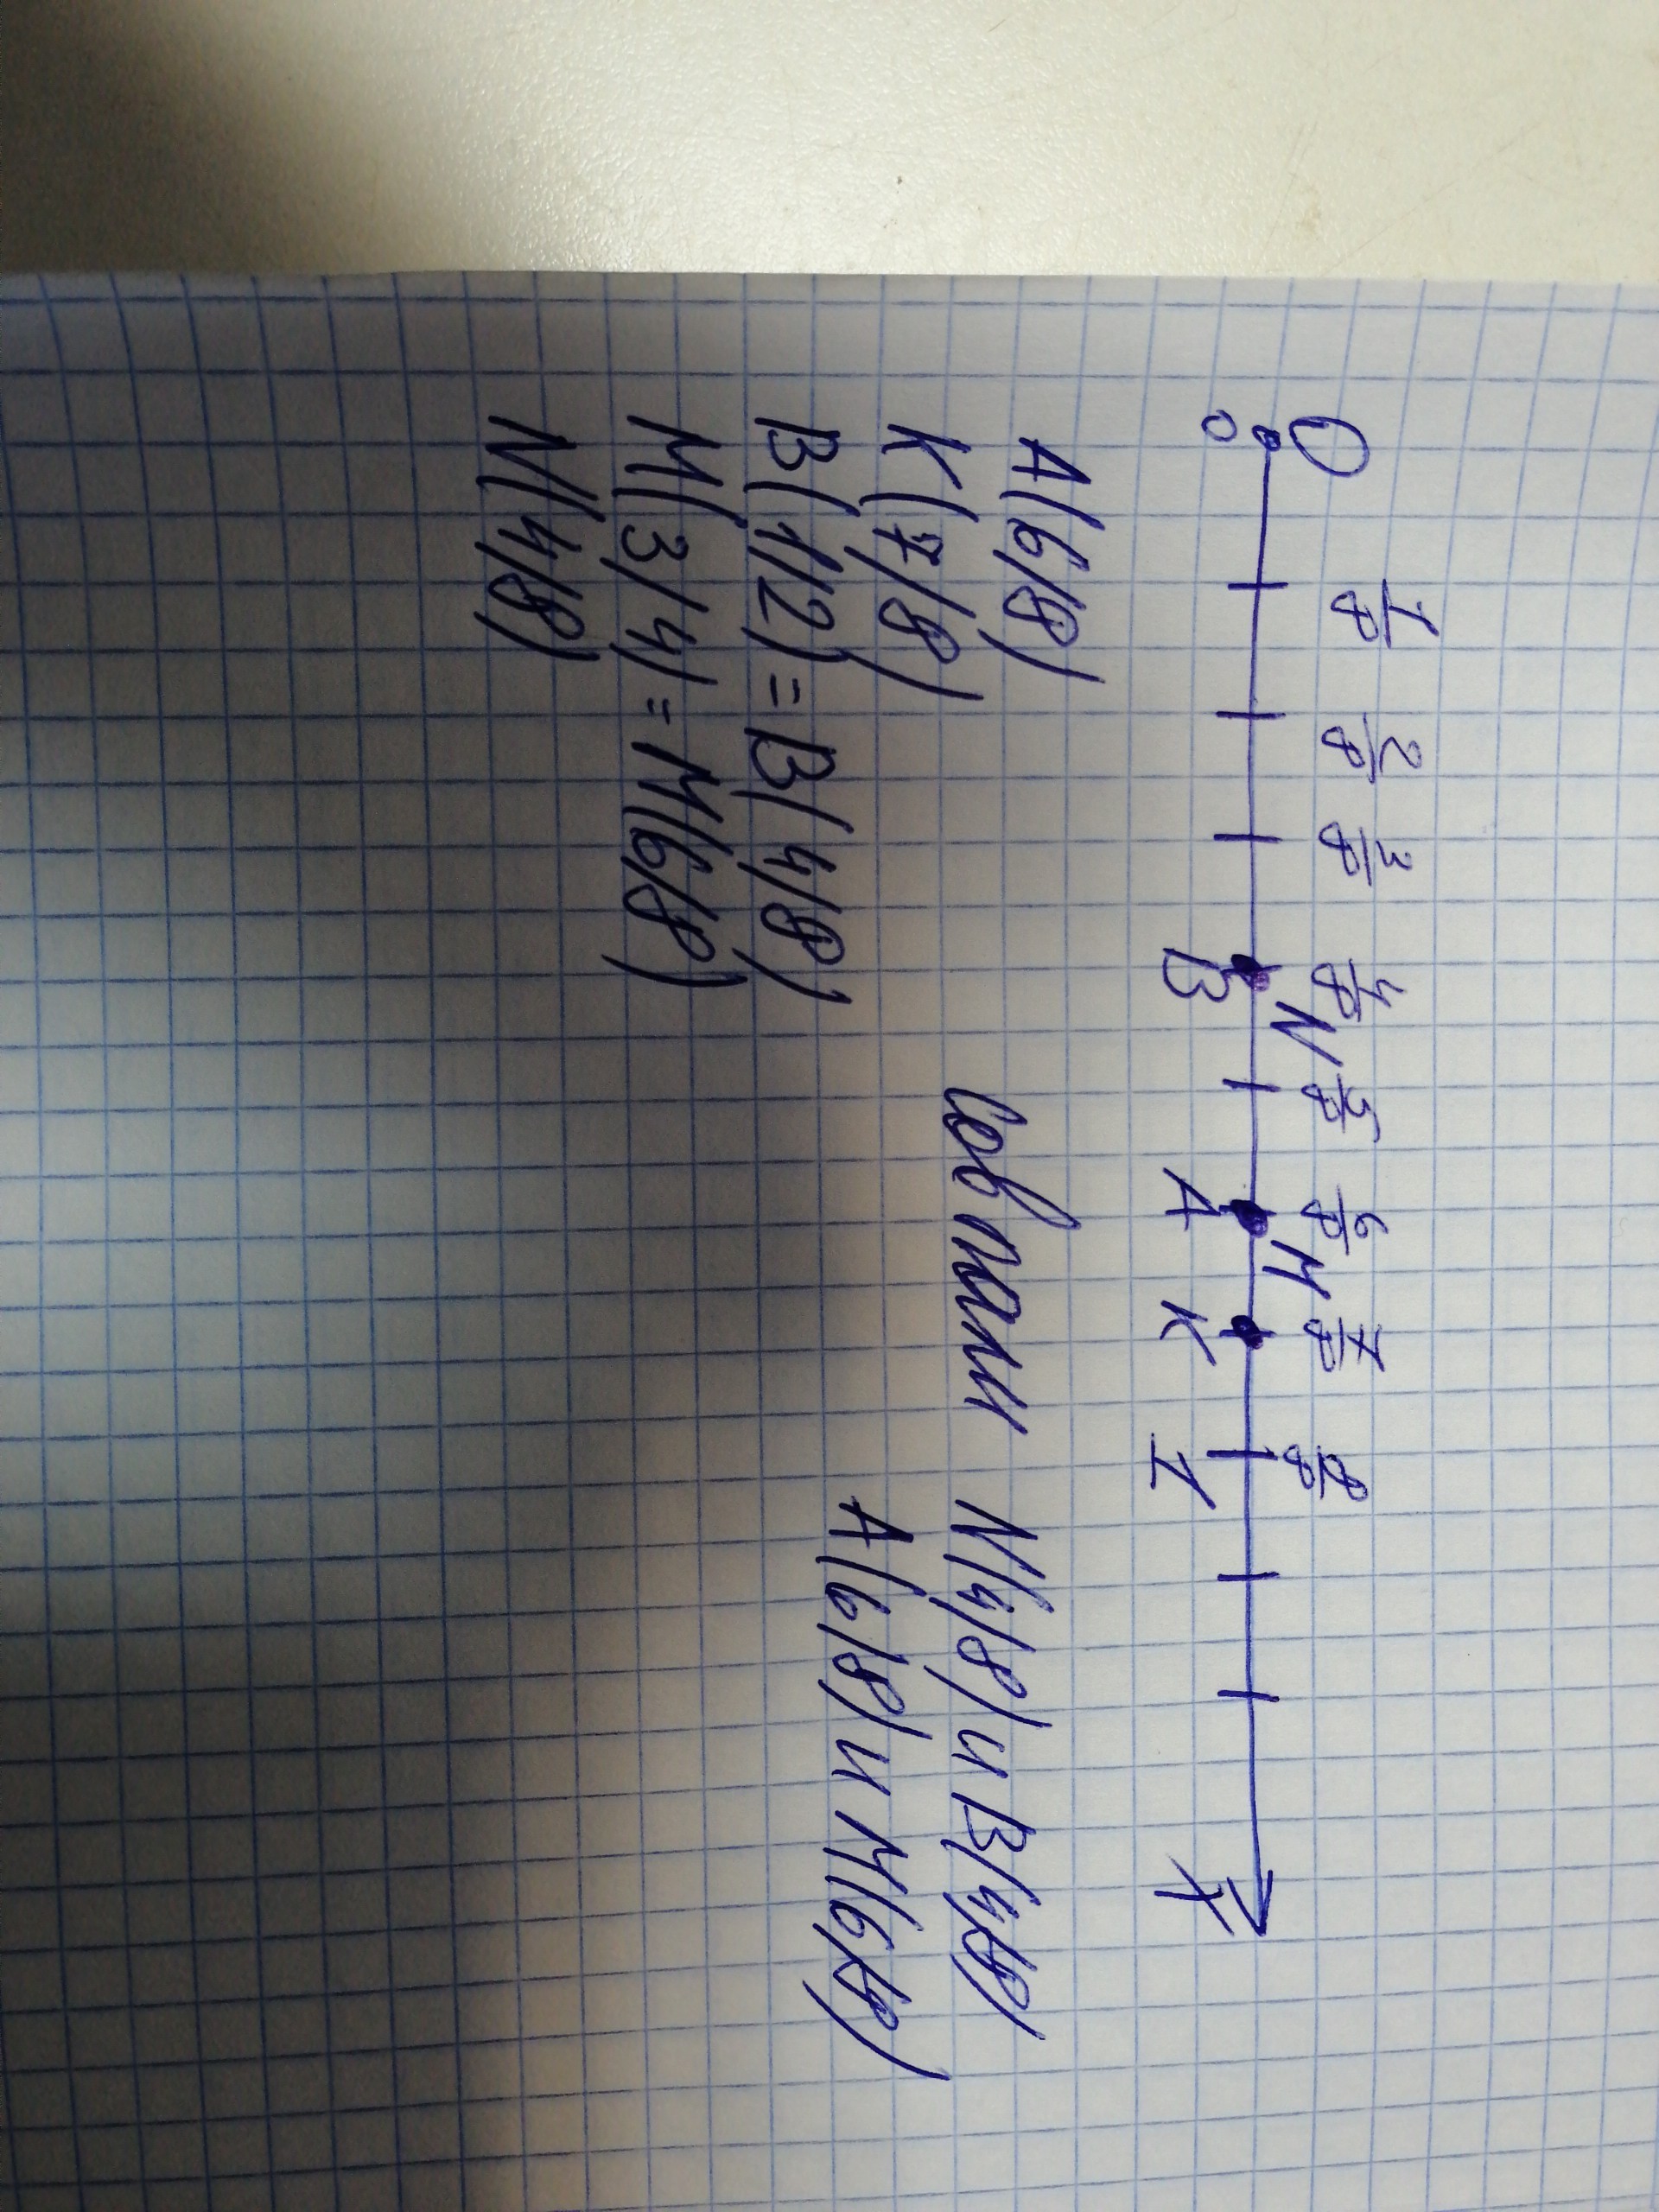 O 1/8 2/8 3/8 4/8 5/8 6/8 7/8 8/8
N M
0 B A K 1 X
A(6/8)
K(7/8) совпали N(4/8) и B(4/8)
B(1/2) = B(4/8) A(6/8) и M(6/8)
M(3/4) = M(6/8)
N(4/8)